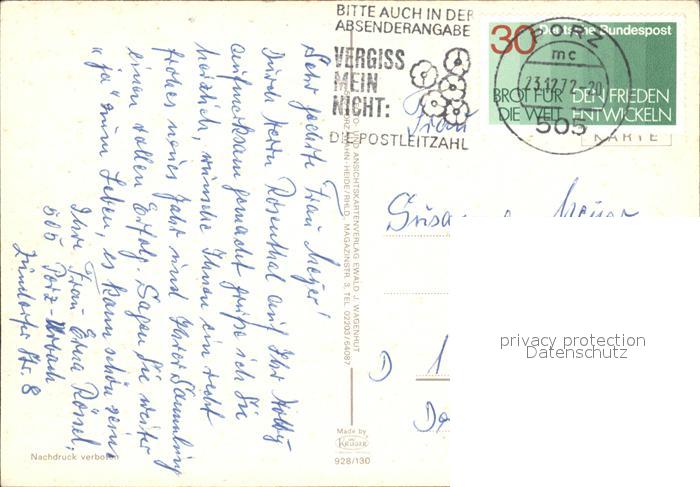 BITTE AUCH IN DER
ABSENDERANGABE
VERGISS
MEIN
NICHT:
DIE POSTLEITZAHL
30 Deutsche Bundespost
BROT FÜR DEN FRIEDEN
DIE WELT ENTWICKELN
PORZ
mc
23.12.72-20
505
KARTE
Sehr geehrte Frau Meyer!
Durch Herrn Rosenthal auf Ihr Hobby
aufmerksam gemacht grüße ich Sie
herzlich, wünsche Ihnen ein recht
frohes neues Jahr und Ihrer Sammlung
einen vollen Erfolg. Sagen Sie weiter
"ja" zum Leben, es kann schön sein.
Ihre Frau Erna Rössel,
505 Porz-Urbach
Zündorfer Str. 8
FOTO- UND ANSICHTSKARTENVERLAG EWALD J. WAGENHUT
PORZ-WAHN-HEIDE/RHLD. MAGAZINSTR. 3, TEL. 02203/64087
Frau
Susa Meyer
D 1
Da
privacy protection
Datenschutz
Made by
KRÜGER
928/130
Nachdruck verboten